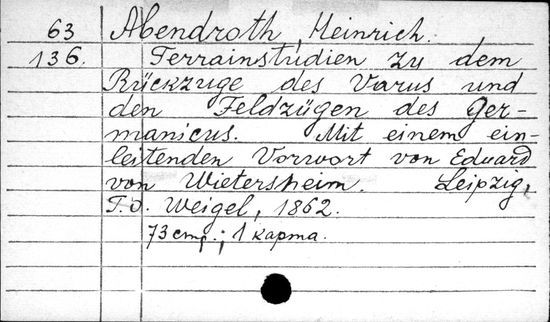 63 Abendroth, Heinrich.
136. Terrainstudien zu dem
Rückzuge des Varus und
den Feldzügen des Ger-
manicus. Mit einem ein-
leitenden Vorwort von Eduard
von Wietersheim. Leipzig,
T.O. Weigel, 1862.
73 стр.; 1 карта.